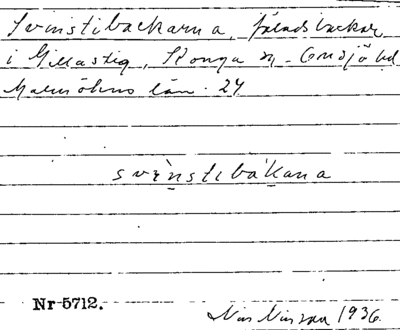 Svinstibackarna, frendsbackar
i Gillastig, Stånga sn. Onsjö hd
Malmöhus län. 24
svinstibákana
Nr 5712.
Nils Nilsson 1936.